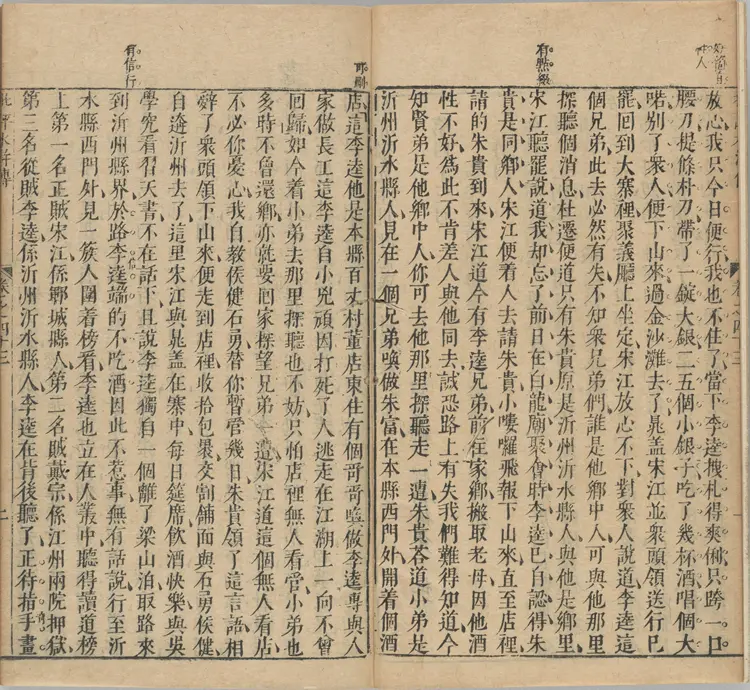 放心我只今日便行我也不住了當下李逵拽札得爽俐只跨一口
腰刀提條朴刀帶了一錠大銀三五個小銀子吃了幾杯酒唱個大
喏別了衆人便下山來過金沙灘去了晁盖宋江並衆頭領送行已
罷回到大寨裡聚義廳上坐定宋江放心不下對衆人說道李逵這
個兄弟此去必然有失不知衆兄弟們誰是他鄉中人可與他那里
探聽個消息杜遷便道只有朱貴原是沂州沂水縣人與他是鄉里
宋江聽罷說道我却忘了前日在白龍廟聚會時李逵已自認得朱
貴是同鄉人宋江便着人去請朱貴小嘍囉飛報下山來直至店裡
請的朱貴到來宋江道今有李逵兄弟前往家鄉搬取老母因他酒
性不好爲此不肯差人與他同去誠恐路上有失我們難得知道今
知賢弟是他鄉中人你可去他那里探聽走一遭朱貴荅道小弟是
沂州沂水縣人見在一個兄弟喚做朱富在本縣西門外開着個酒
店這李逵他是本縣百丈村董店東住有個哥哥喚做李逵專與人
家做長工這李逵自小兇頑因打死了人逃走在江湖上一向不曾
回歸如今着小弟去那里探聽也不妨只怕店裡無人看管小弟也
多時不曾還鄉亦就要回家探望兄弟一遭宋江道這個無人看店
不必你憂心我自教侯健石勇替你暫管幾日朱貴領了這言語相
辭了衆頭領下山來便走到店裡收拾包裹交割舖面與石勇侯健
自逩沂州去了這里宋江與晁盖在寨中每日筵席飲酒快樂與吳
學究看習天書不在話下且說李逵獨自一個離了梁山泊取路來
到沂水縣界於路李逵端的不吃酒因此不惹事無有話說行至沂
水縣西門外見一簇人圍着榜看李逵也立在人叢中聽得讀道榜
上第一名正賊宋江係鄆城縣人第二名賊戴宗係江州兩院押獄
第三名從賊李逵係沂州沂水縣人李逵在背後聽了正待指手畫
有㸃綴
有信行
卷之四十三